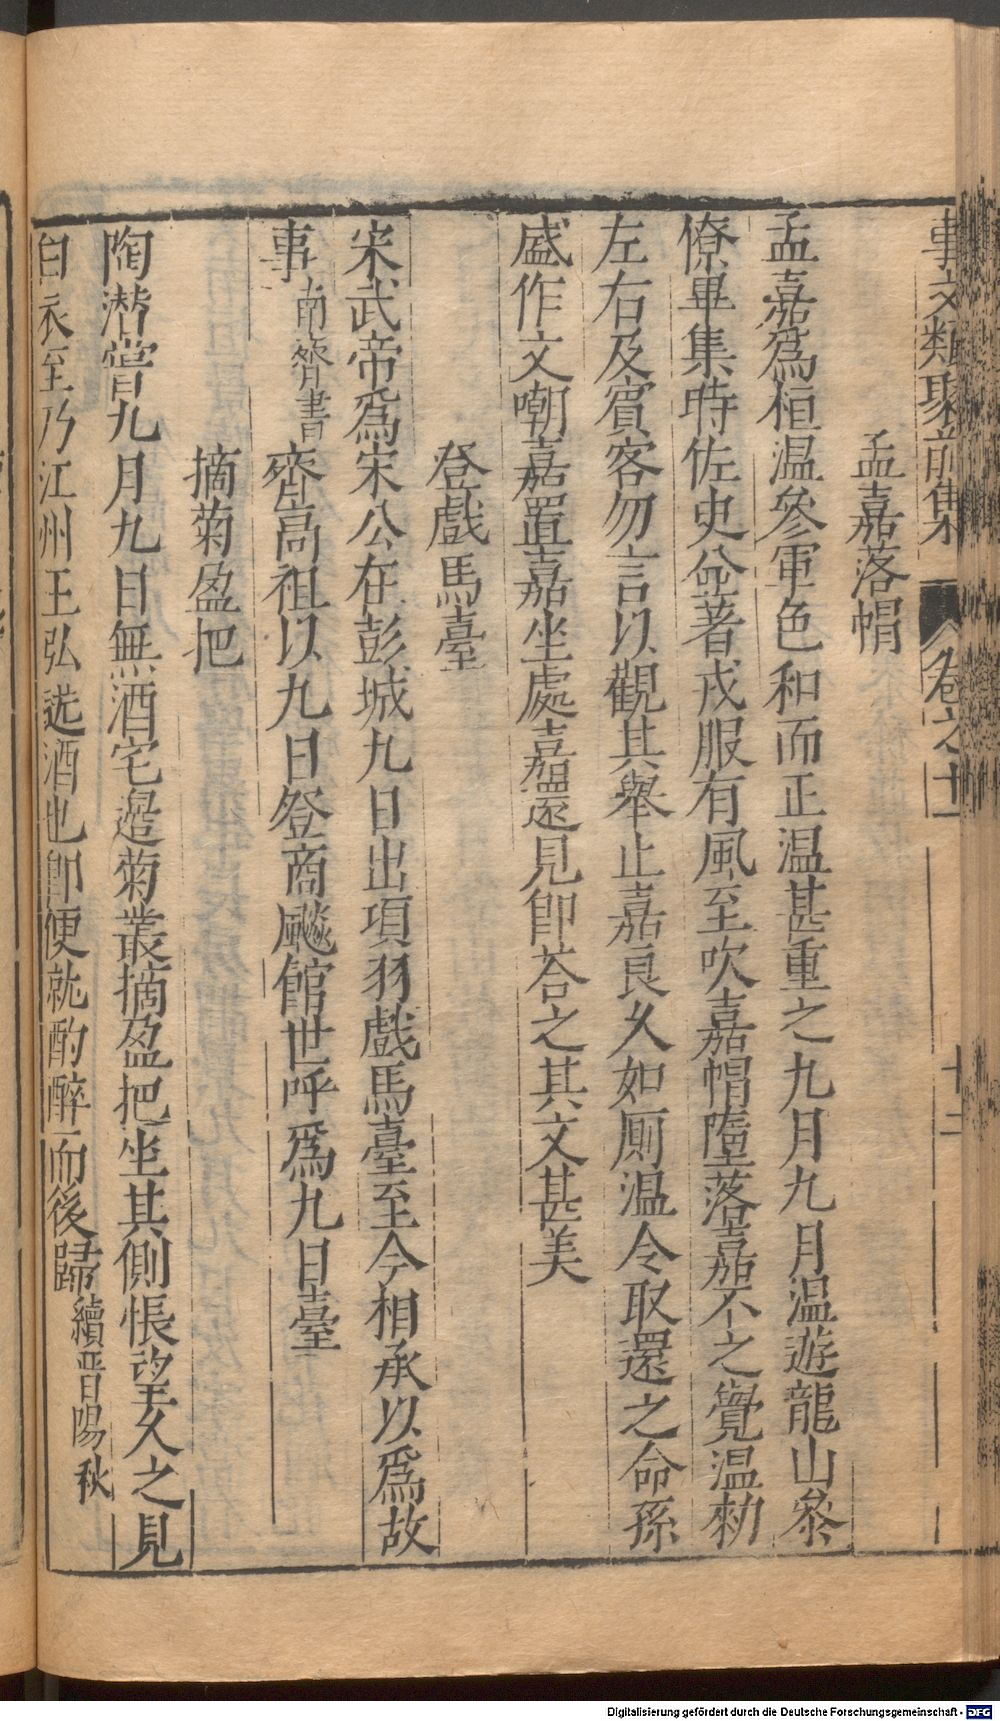 事文類聚前集 卷之十一 十二
孟嘉落帽
孟嘉爲桓温參軍色和而正温甚重之九月九月温遊龍山參
僚畢集時佐史並著戎服有風至吹嘉帽墮落嘉不之覺温勑
左右及賓客勿言以觀其舉止嘉良久如厠温令取還之命孫
盛作文嘲嘉置嘉坐處嘉還見卽荅之其文甚美
登戲馬臺
宋武帝爲宋公在彭城九日出項羽戲馬臺至今相承以爲故
事南齊書 齊高祖以九日登商飈館世呼爲九日臺
摘菊盈把
陶潜嘗九月九日無酒宅邉菊叢摘盈把坐其側悵望久之見
白衣至乃江州王弘送酒也卽便就酌醉而後歸續晋陽秋
Digitalisierung gefördert durch die Deutsche Forschungsgemeinschaft - DFG